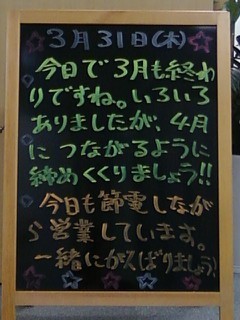 3月31日(木)
今日で3月も終わ
りですね。いろいろ
ありましたが、4月
につながるように
締めくくりましょう!!
今日も節電しなが
ら営業しています。
一緒にがんばりましょう!